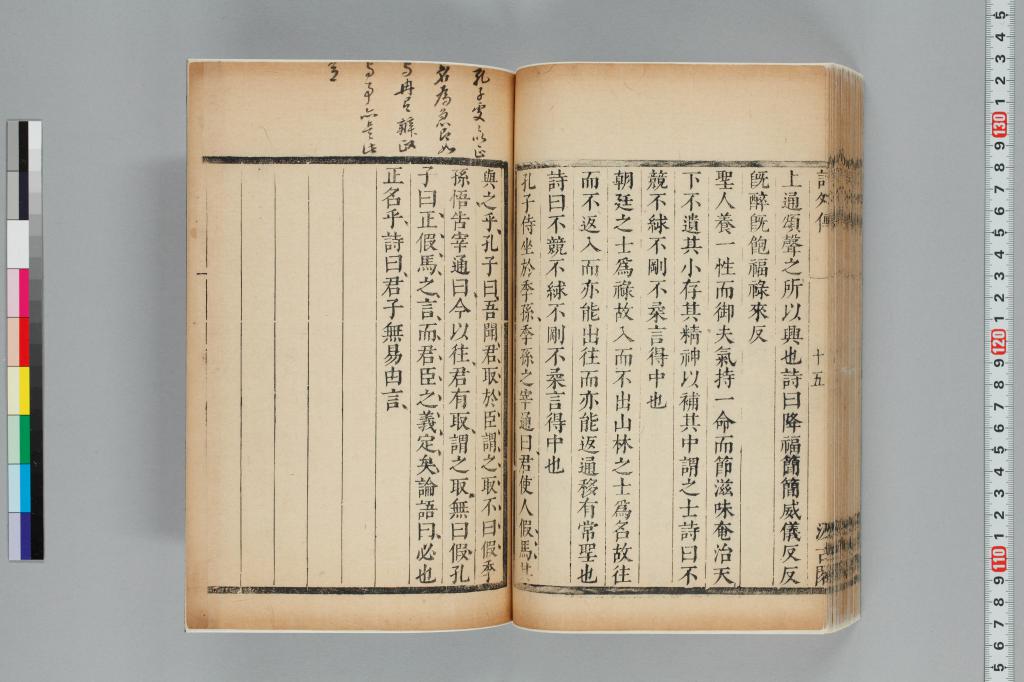 詩外傳
十五
汲古閣
上通頌聲之所以興也詩曰降福簡簡威儀反反
旣醉旣飽福祿來反
聖人養一性而御夫氣持一命而節滋味奄治天
下不遺其小存其精神以補其中謂之士詩曰不
競不絿不剛不柔言得中也
朝廷之士爲祿故入而不出山林之士爲名故往
而不返入而亦能出往而亦能返通移有常聖也
詩曰不競不絿不剛不柔言得中也
孔子侍坐於季孫季孫之宰通曰君使人假馬其
與之乎孔子曰吾聞君取於臣謂之取不曰假季
孫悟告宰通曰今以往君有取謂之取無曰假孔
子曰正假馬之言而君臣之義定矣論語曰必也
正名乎詩曰君子無易由言
孔子
名爲